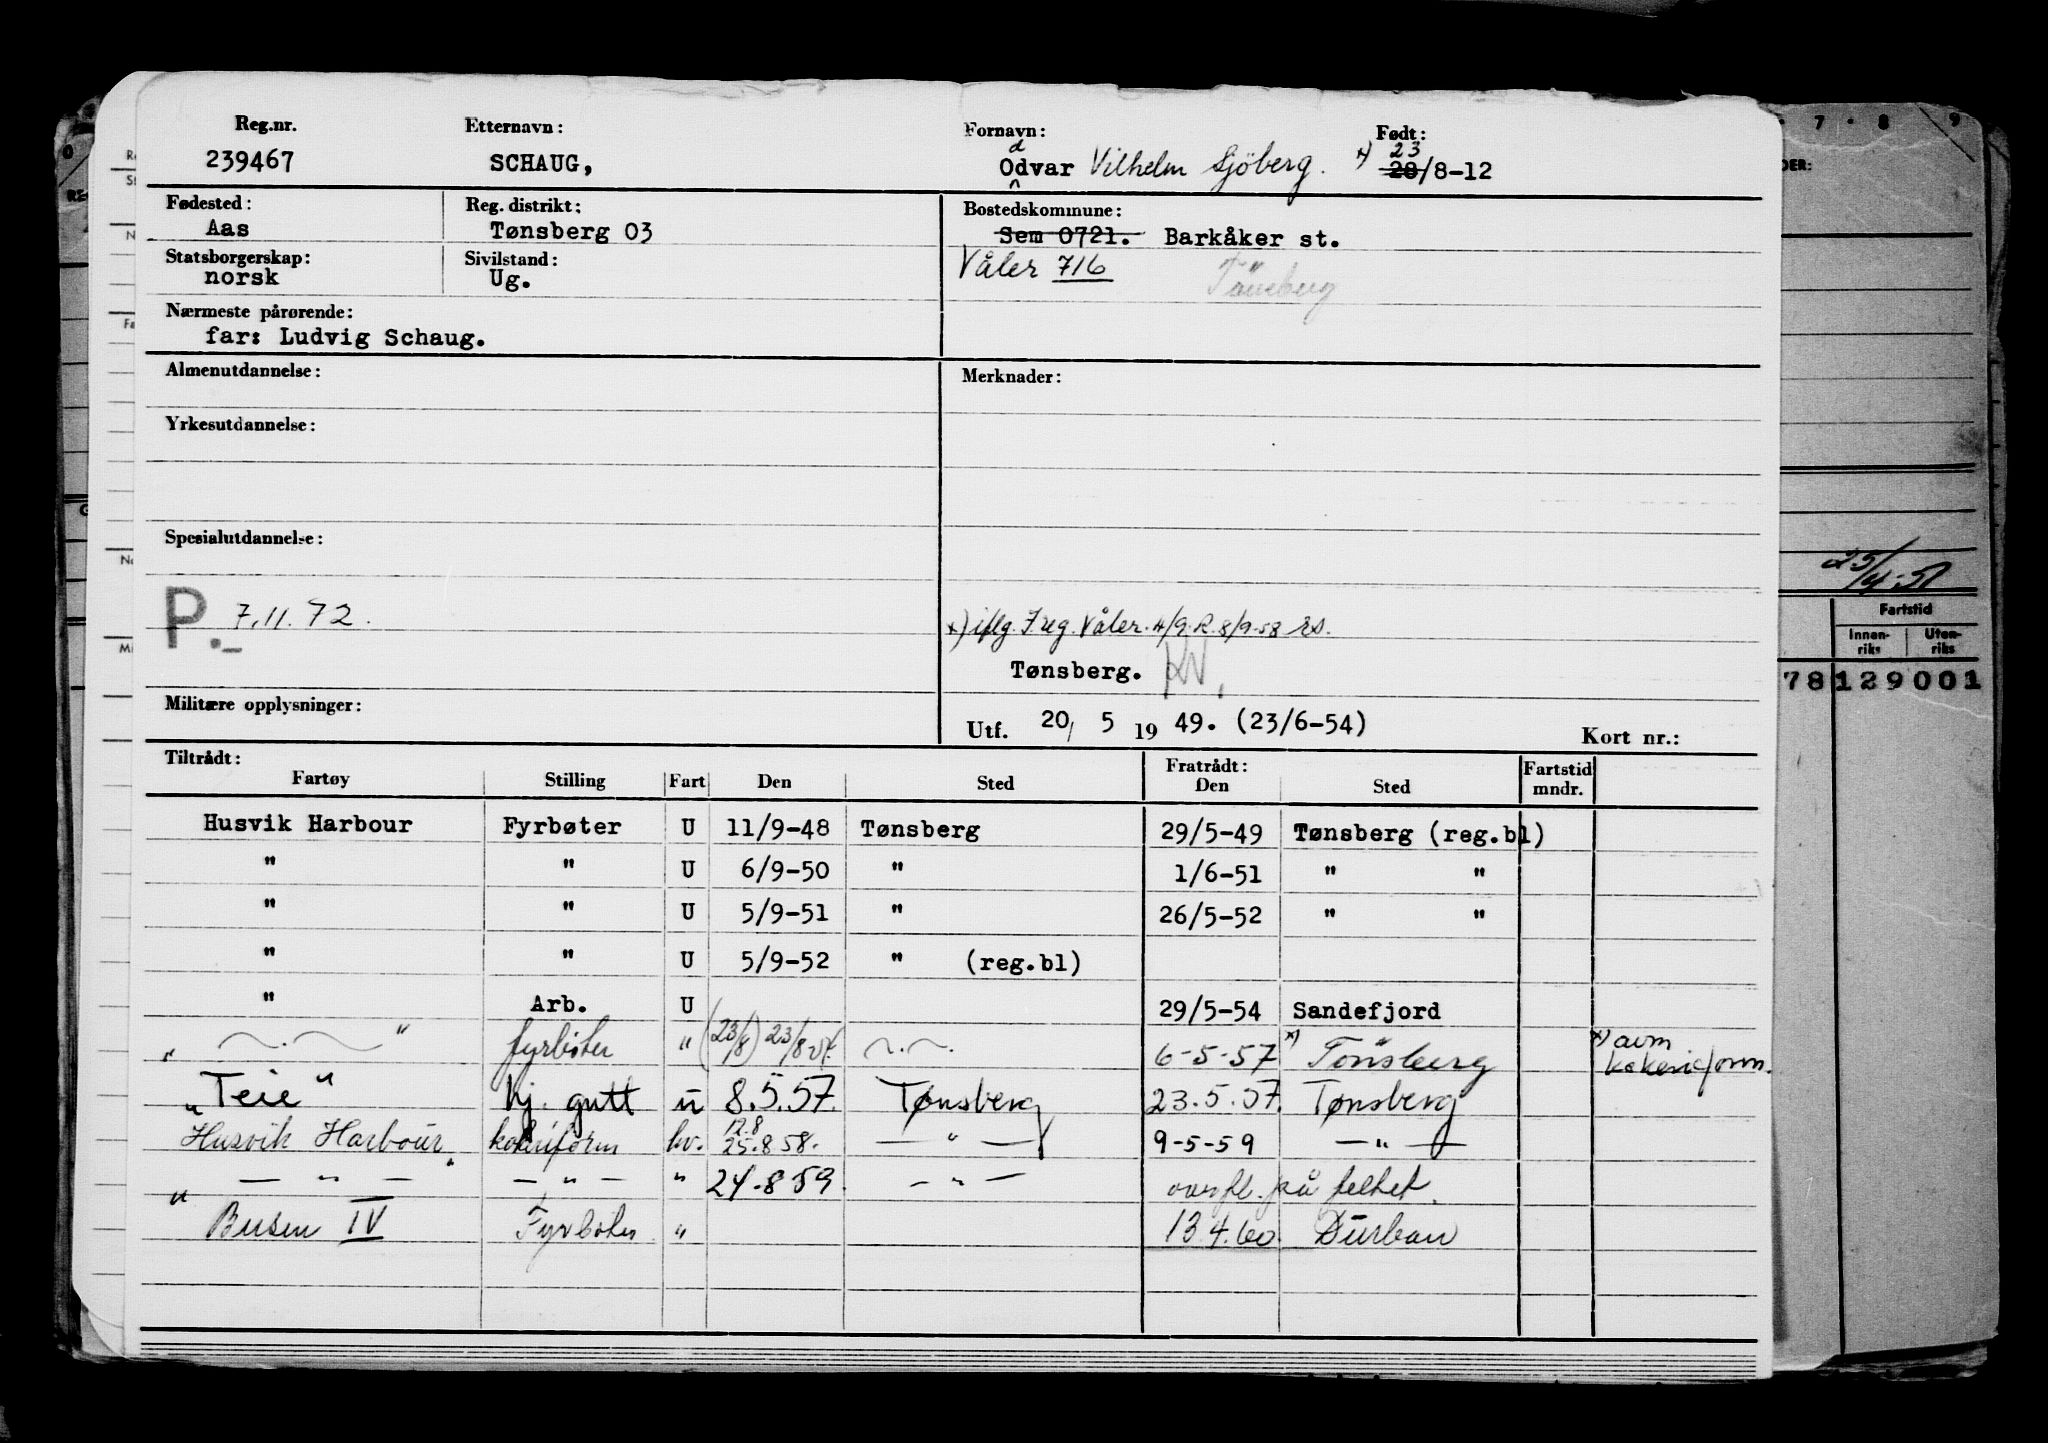 Reg.nr. Etternavn: Fornavn: Født:
239467 SCHAUG, Odvar Vilhelm Sjöberg. x) 23
28/8-12
Fødested: Reg. distrikt: Bostedskommune:
Aas Tønsberg 03 Sem 0721. Barkåker st.
Statsborgerskap: Sivilstand: Våler 716 Tönsberg
norsk Ug.
Nærmeste pårørende:
far: Ludvig Schaug.
Almenutdannelse: Merknader:
Yrkesutdannelse:
Spesialutdannelse:
P. 7.11.72. x) iflg. Freg. Våler. 4/9. R. 8/9-58 rs.
Tønsberg.
Militære opplysninger: Utf. 20/ 5 19 49. (23/6-54) Kort nr.:
Tiltrådt: Fratrådt: Fartstid
Fartøy Stilling Fart Den Sted Den Sted mndr.
Husvik Harbour Fyrbøter U 11/9-48 Tønsberg 29/5-49 Tønsberg (reg.bl)
" " U 6/9-50 " 1/6-51 " "
" " U 5/9-51 " 26/5-52 " "
" " U 5/9-52 " (reg.bl)
" Arb. U 29/5-54 Sandefjord
" — . — " fyrbøter " (23/8) 23/8 — . — . 6-5-57 x) Tönsberg x) avm
kokeriform.
"Teie" hj. gutt u 8.5.57. Tønsberg 23.5.57. Tønsberg
Husvik Harbour kokeriform hv. 12.8
25.8 58. — " — 9-5-59 — " —
" — " — " — " — " 24.8 59. — " — overfl. på feltet.
" Busen IV Fyrbøter " 13.4.60. Durban
7 8 9
25/4-51
Fartstid
Innen-
riks Uten-
riks
78 129001